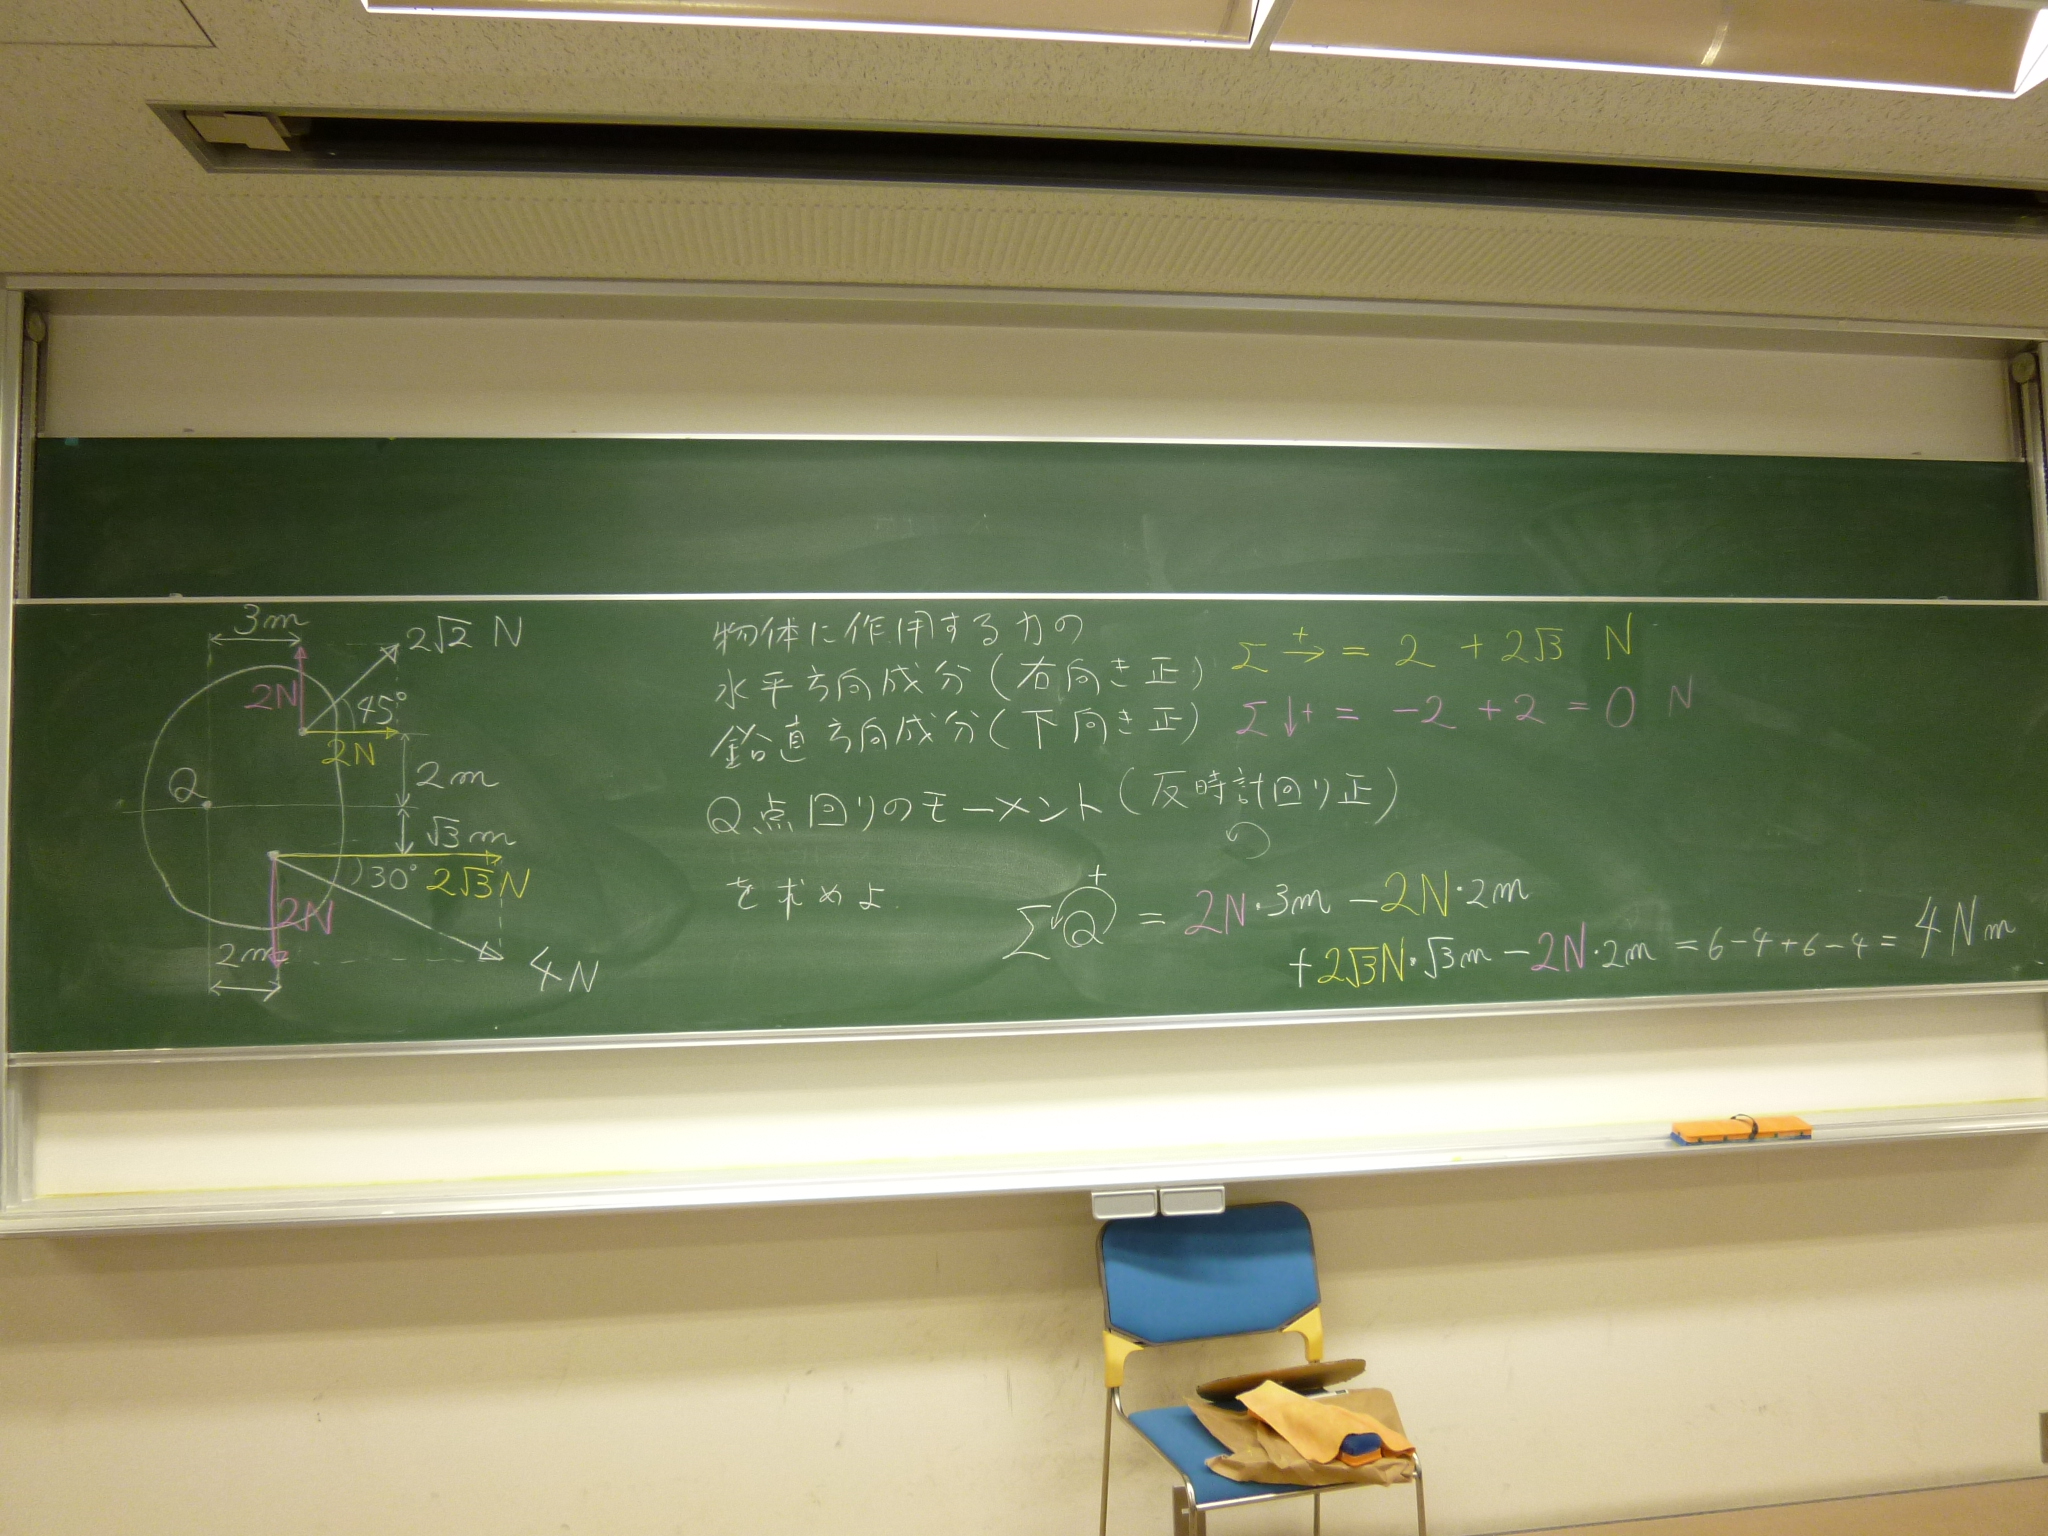 3m
2√2 N
2N
45°
2N
Q
2m
√3m
30°
2√3N
2N
2m
4N
物体に作用する力の
水平方向成分(右向き正)
鉛直方向成分(下向き正)
Q点回りのモーメント(反時計回り正)
を求めよ
Σ→+ = 2 + 2√3 N
Σ↓+ = -2 + 2 = 0 N
ΣQ+ = 2N・3m - 2N・2m
+ 2√3N・√3m - 2N・2m = 6-4+6-4 = 4Nm